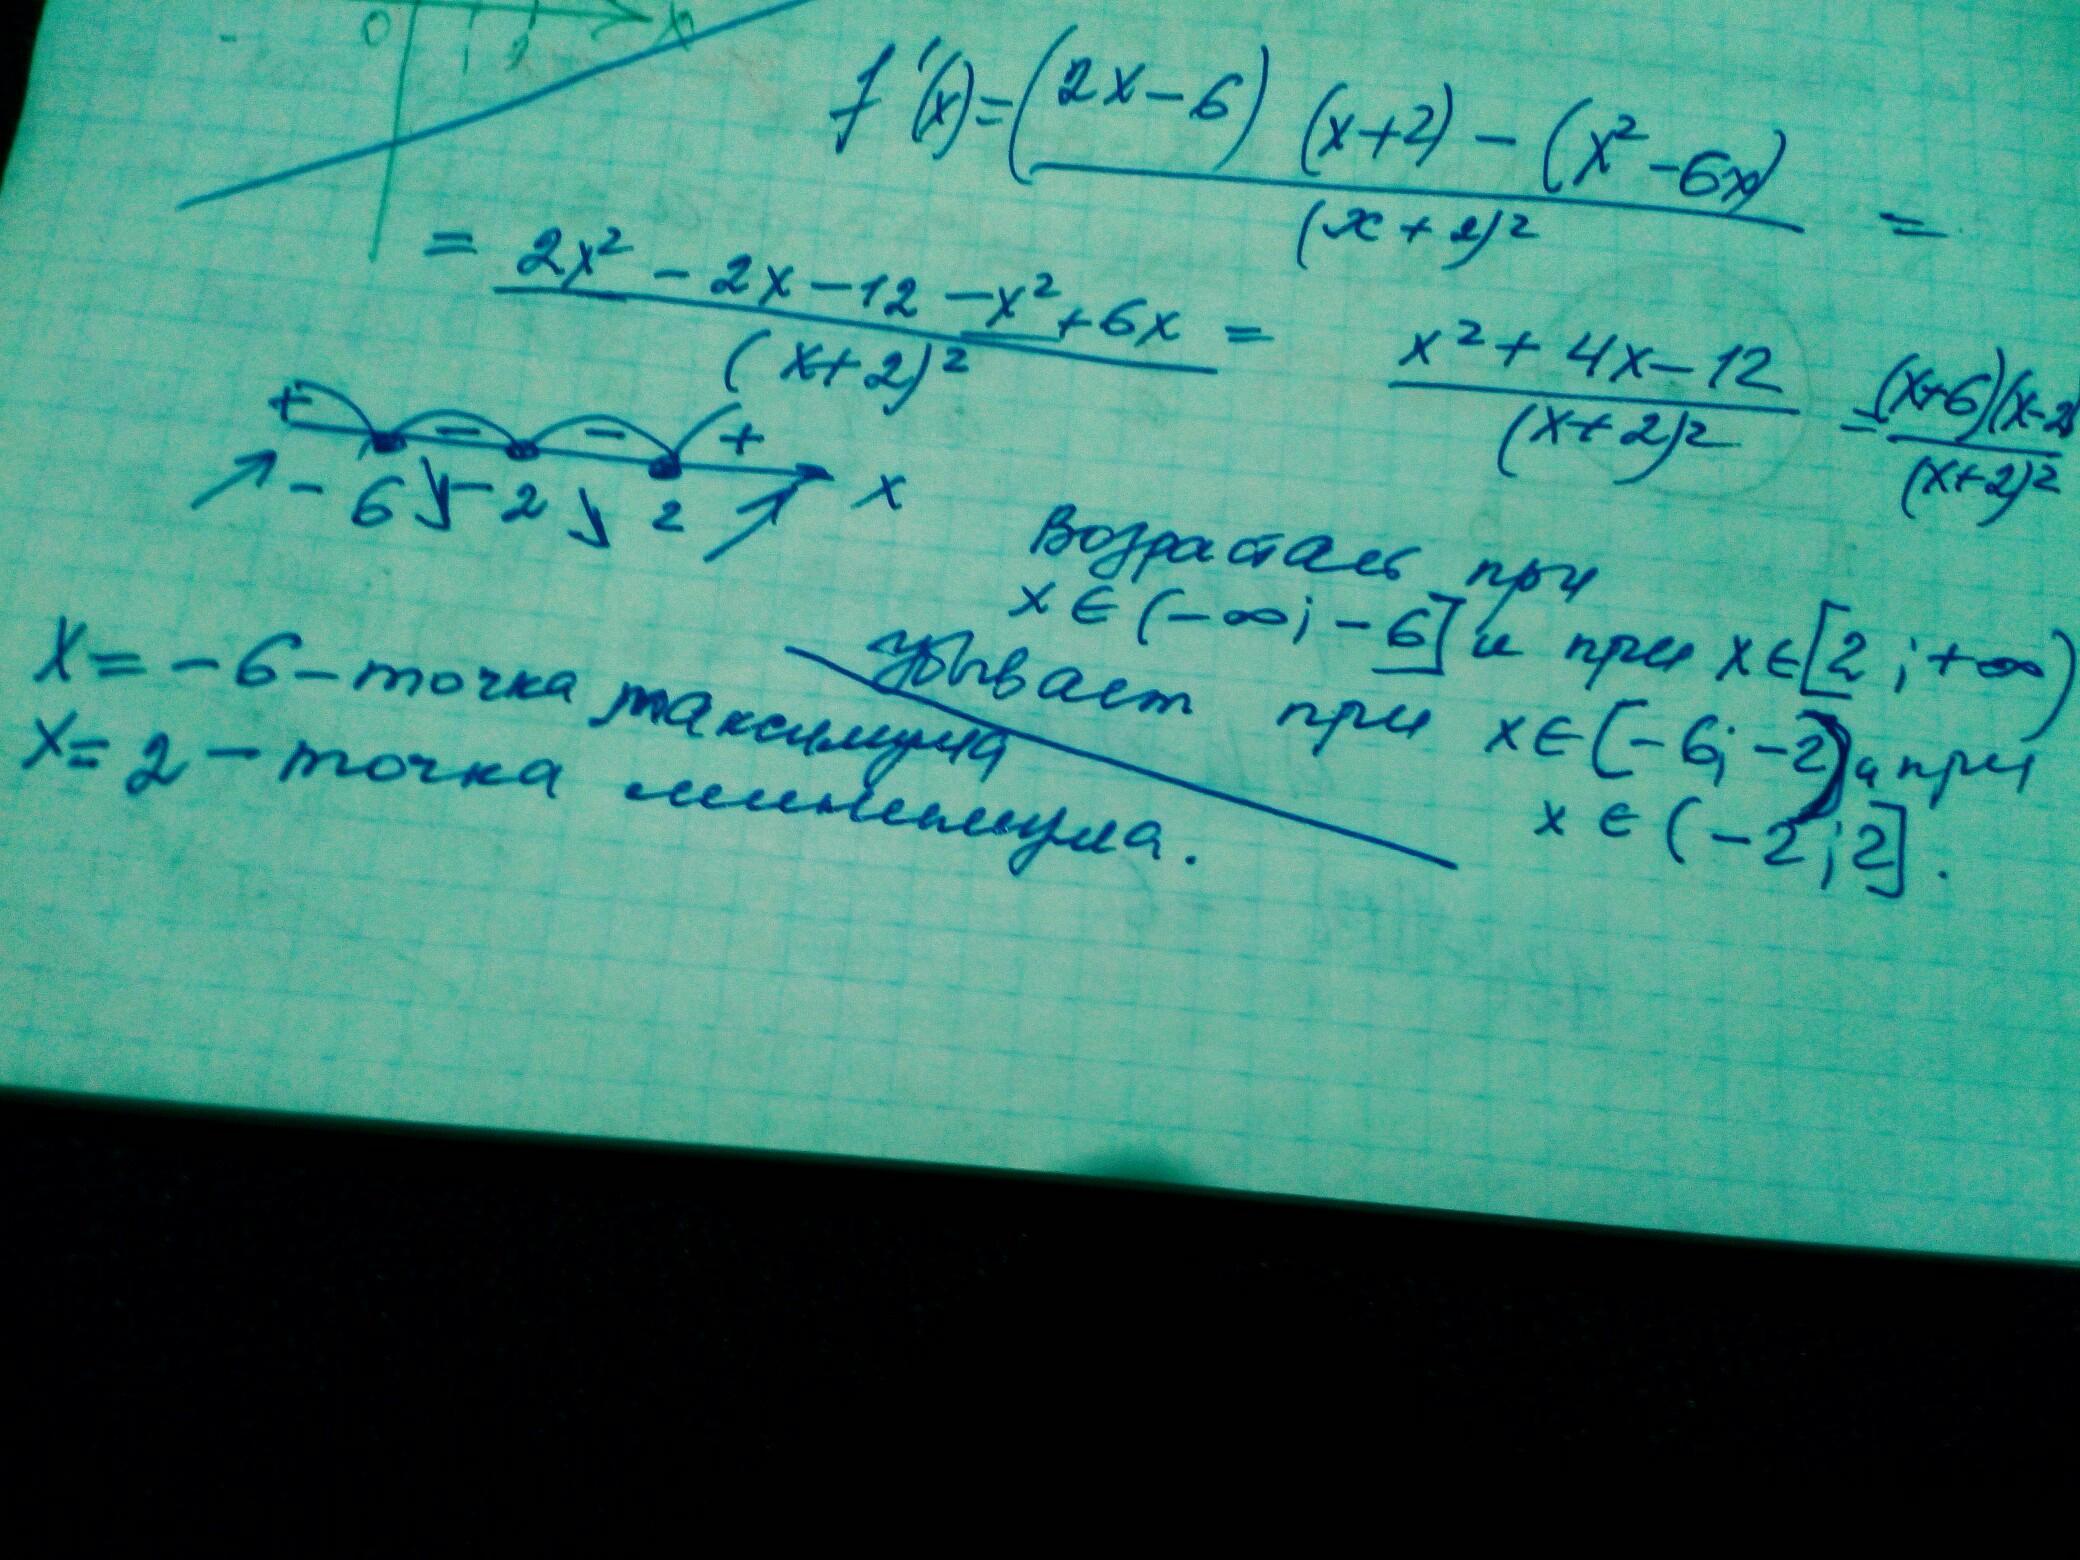 0 1 2 x
f'(x) = ((2x-6)(x+2) - (x²-6x)) / (x+2)² =
= (2x² - 2x - 12 - x² + 6x) / (x+2)² = (x² + 4x - 12) / (x+2)² = (x+6)(x-2) / (x+2)²
+ - - +
-6 -2 2 x
Возрастает при
x ∈ (-∞; -6] и при x ∈ [2; +∞)
убывает при x ∈ [-6; -2) и при
x ∈ (-2; 2].
x = -6 - точка максимума
x = 2 - точка минимума.